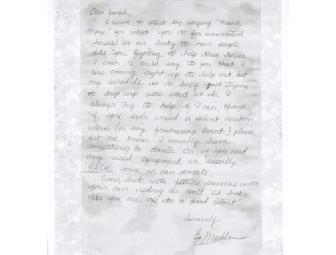 Dear Sarah,
I want to start by saying thank
you for what you do for unwanted
horses! We are lucky to have people
like you fighting to help these horses.
I wish I could say to you that I
was coming right up to help out but
my schedule is so busy just trying
to keep up with what we do. I
always try to help if I can, though,
if you ever need a silent auction
item (or any fundraising event) please
let me know. I usually have
something to donate. Or if you need
any used equipment, we usually
have some we can donate.
Good luck with future success with
your own riding as well. It looks
like you are off to a good start!
Sincerely,